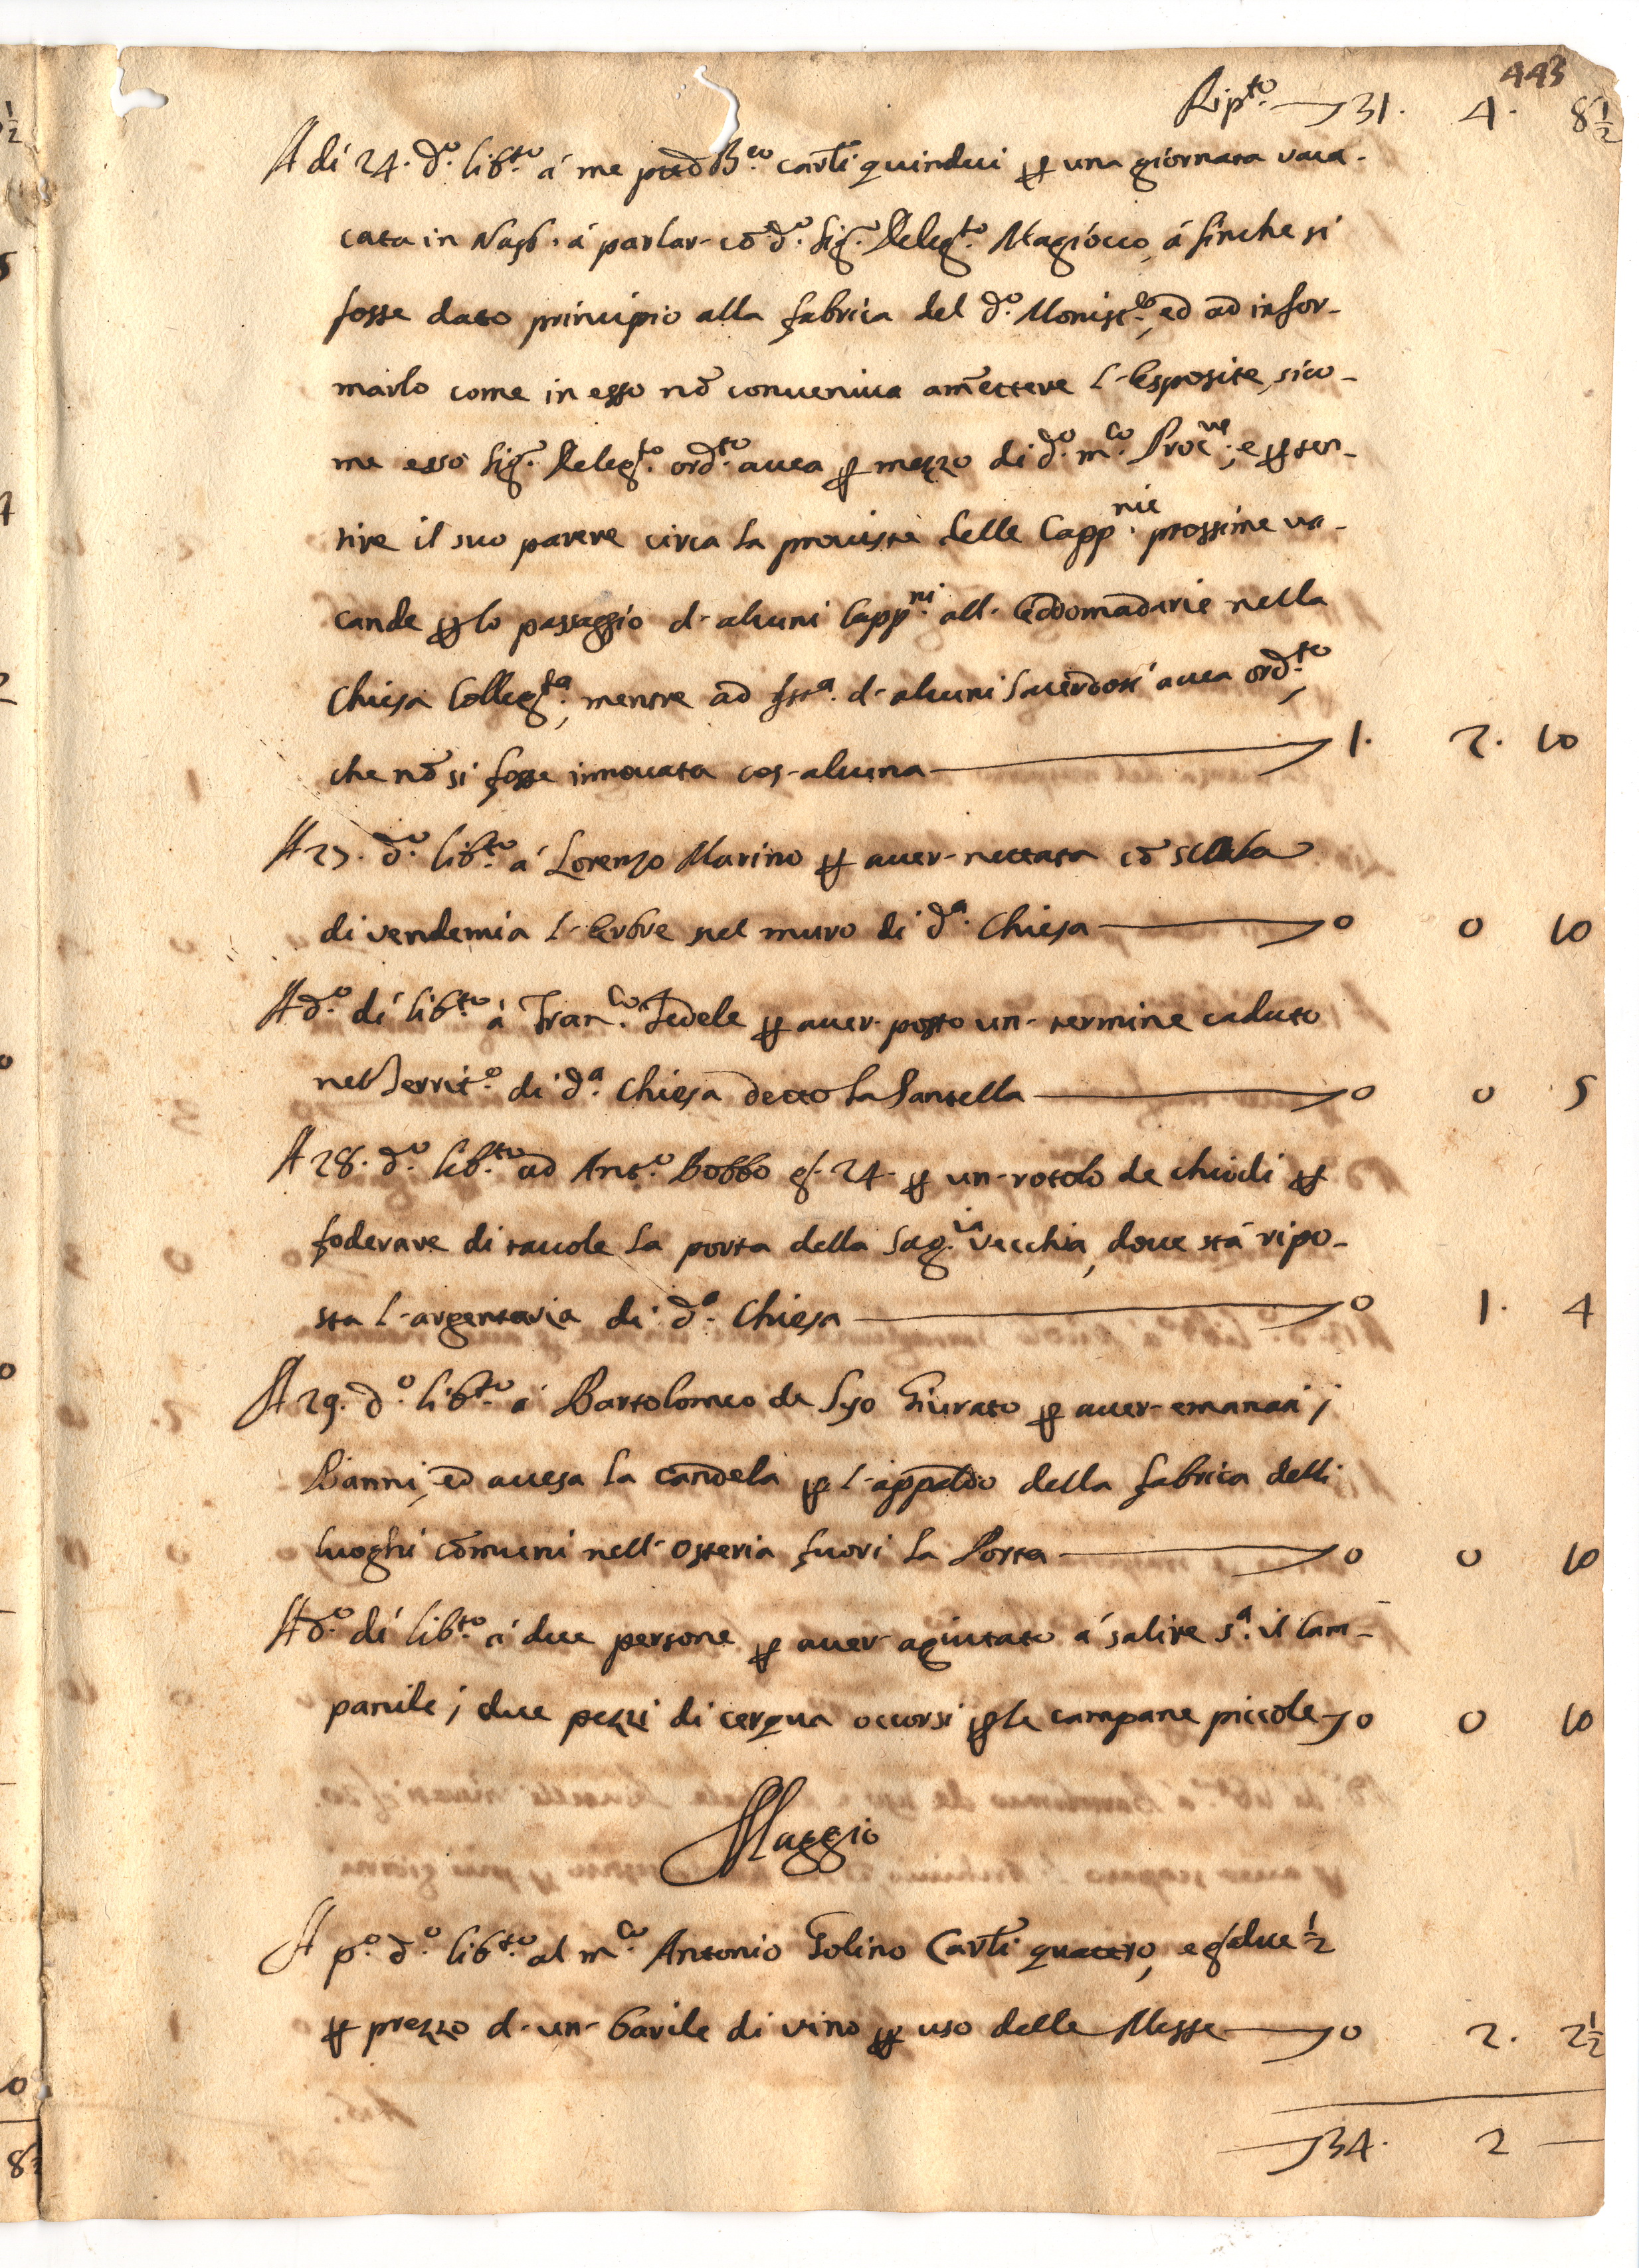 443
Rip.to 31. 4. 8½
A di 24. d.o lib.to á me pred.o B.eo carli quindici per una giornata vaca-
cata in Nap. á parlar- cō d.o Sig.r Deleg.to Magiocco, á finche si
fosse dato principio alla fabrica del d.o Monist.o, ed ad infor-
marlo come in esso nō conueniua am̄ettere l-Esposite, sico-
me esso Sig.r Deleg.to ord.to auea per mezzo di d.o m.co Proc.re, e per sen-
tire il suo parere circa la prouista delle Capp.nie prossime va-
cande per lo passaggio d-alcuni Capp.ni all-Eddomadarie nella
Chiesa Colleg.ta, mentre ad Ist.a d-alcuni Sacerdoti auea ord.to,
che nō si fosse innouata cos-alcuna 1. 2. 10
A 27. d.o lib.to á Lorenzo Marino per auer-nettata cō scala
di vendemia l-Erbre nel muro di d.a Chiesa 0 0 10
A d.o dí lib.to á Fran.co Fedele per auer-posto un-termine caduto
nel Territ.o di d.a Chiesa detto la Santella 0 0 5
A 28. d.o lib.to ad Ant.o Bobbo g. 24. per un-rotolo de chiodi per
foderare di tauole la porta della Sag.ia vecchia, doue stá ripo-
sta l-argentaria di d.a Chiesa 0 1. 4
A 29. d.o lib.to á Bartolomeo de Sijo Giurato per auer-emanati i
Banni, ed accesa la candela per l-appaldo della fabrica delli
luoghi cōmuni nell-Osteria fuori la Porta 0 0 10
A d.o dí lib.to á due persone per auer-agiutato á salire s.a il Cam-
panile i due pezzi di cerqua occorsi per le campane piccole 0 0 10
Maggio
A p.o d.o lib.to al m.co Antonio Golino Carli quattro, e g. due ½
per prezzo d-un-barile di vino per uso delle Messe 0 2. 2½
34. 2 —